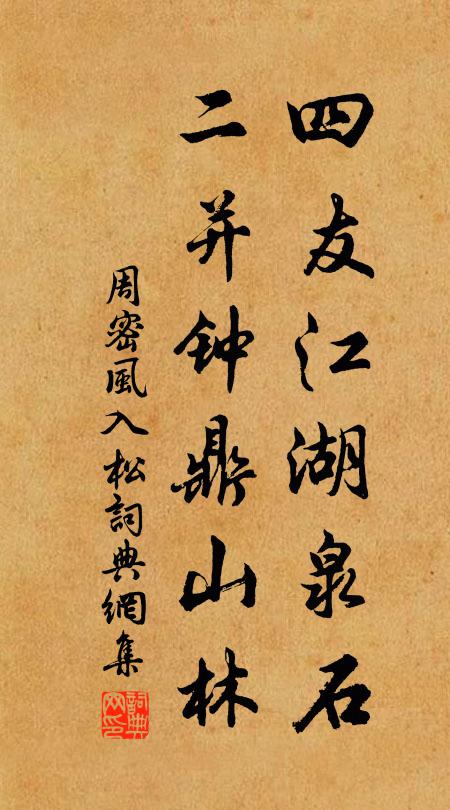 四友江湖泉石
二并钟鼎山林
周密風入松詞典網集
詞典
网印